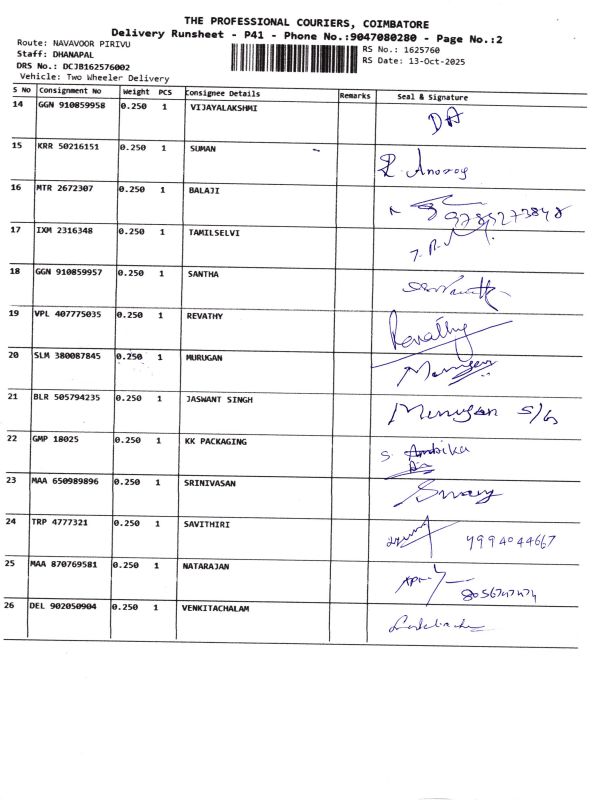 THE PROFESSIONAL COURIERS, COIMBATORE
Delivery Runsheet - P41 - Phone No.:9047080280 - Page No.:2
Route: NAVAVOOR PIRIVU
Staff: DHANAPAL
DRS No.: DCJB162576002
Vehicle: Two Wheeler Delivery
RS No.: 1625760
RS Date: 13-Oct-2025
S No Consignment No Weight PCS Consignee Details Remarks Seal & Signature
14 GGN 910859958 0.250 1 VIJAYALAKSHMI
15 KRR 50216151 0.250 1 SUMAN
16 MTR 2672307 0.250 1 BALAJI 9789273848
17 IXM 2316348 0.250 1 TAMILSELVI
18 GGN 910859957 0.250 1 SANTHA
19 VPL 407775035 0.250 1 REVATHY Revathy
20 SLM 380087845 0.250 1 MURUGAN Murugan
21 BLR 505794235 0.250 1 JASWANT SINGH Murugan S/G
22 GMP 18025 0.250 1 KK PACKAGING S. Ambika
23 MAA 650989896 0.250 1 SRINIVASAN
24 TRP 4777321 0.250 1 SAVITHIRI 9994044667
25 MAA 870769581 0.250 1 NATARAJAN
26 DEL 902050904 0.250 1 VENKITACHALAM